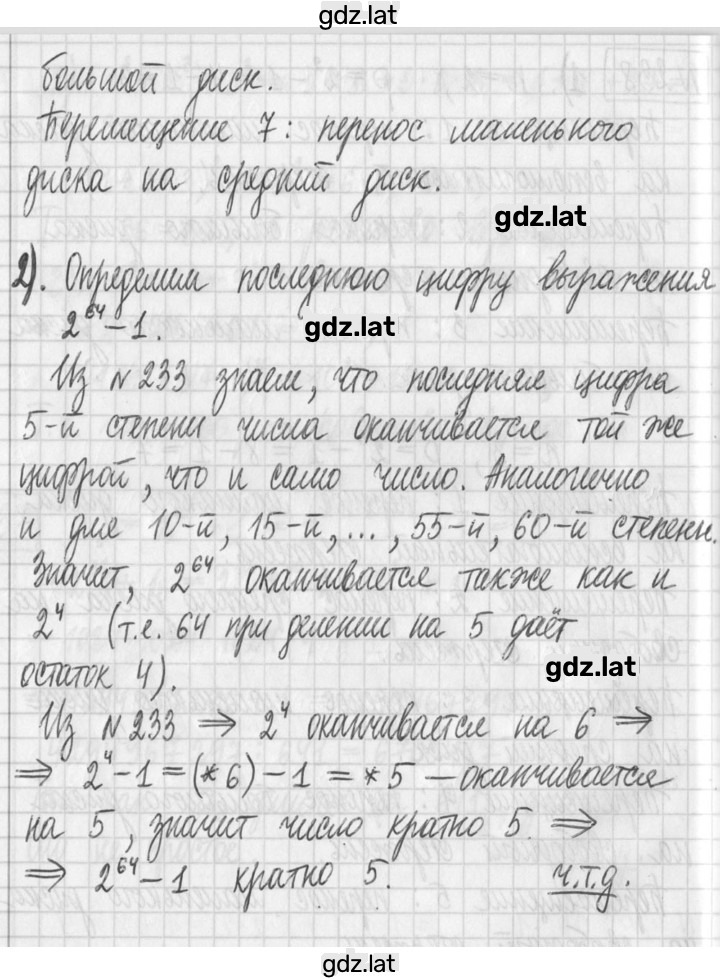 gdz.lat
большой диск.
Перемещение 7: перенос маленького
диска на средний диск.
gdz.lat
2). Определим последнюю цифру выражения
2⁶⁴-1.
gdz.lat
Из №233 знаем, что последняя цифра
5-й степени числа оканчивается той же
цифрой, что и само число. Аналогично
и для 10-й, 15-й, ..., 55-й, 60-й степени.
Значит, 2⁶⁴ оканчивается также как и
2⁴ (т.е. 64 при делении на 5 даёт
остаток 4).
gdz.lat
Из №233 ⇒ 2⁴ оканчивается на 6 ⇒
⇒ 2⁴-1=(*6)-1=*5 — оканчивается
на 5, значит число кратно 5. ⇒
⇒ 2⁶⁴-1 кратно 5. ч.т.д.
gdz.lat